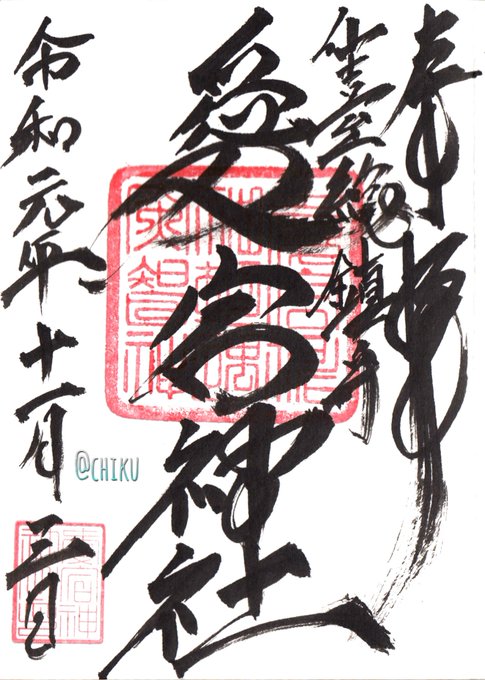 奉拝
仙臺総鎮守
愛宕神社
令和元年十一月三日
@CHIKU